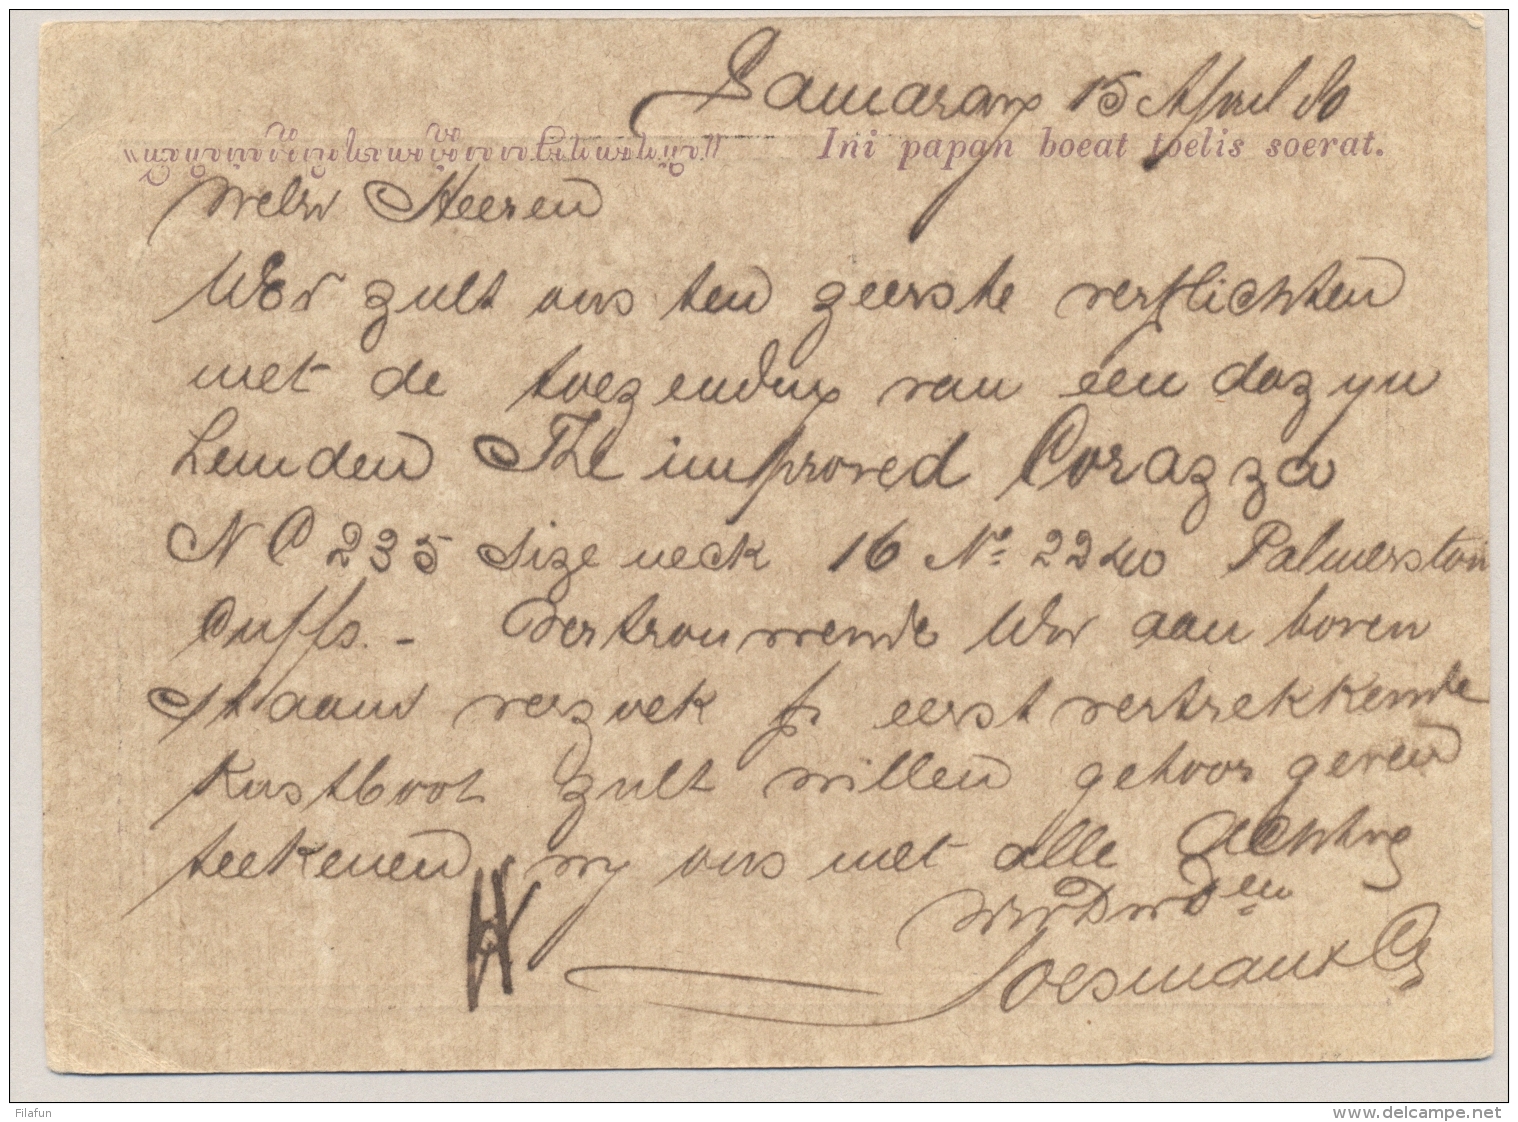 Samarang 15 April 80
Ini papan boeat toelis soerat.
Welw Heeren
WEw zult ons ten zeerste verplichten
met de toezending van een dozyn
hemden The improved Corazza
N C 235 size neck 16 No. 2240 Palmerston
Cuffs. - Vertrouwende Uw aan boven
staand verzoek p eerst vertrekkende
Kustboot zult willen gehoor geven
teekenen wy ons met alle Achting
UwDwDen
Soesman & Co
Filafun
www.delcampe.net